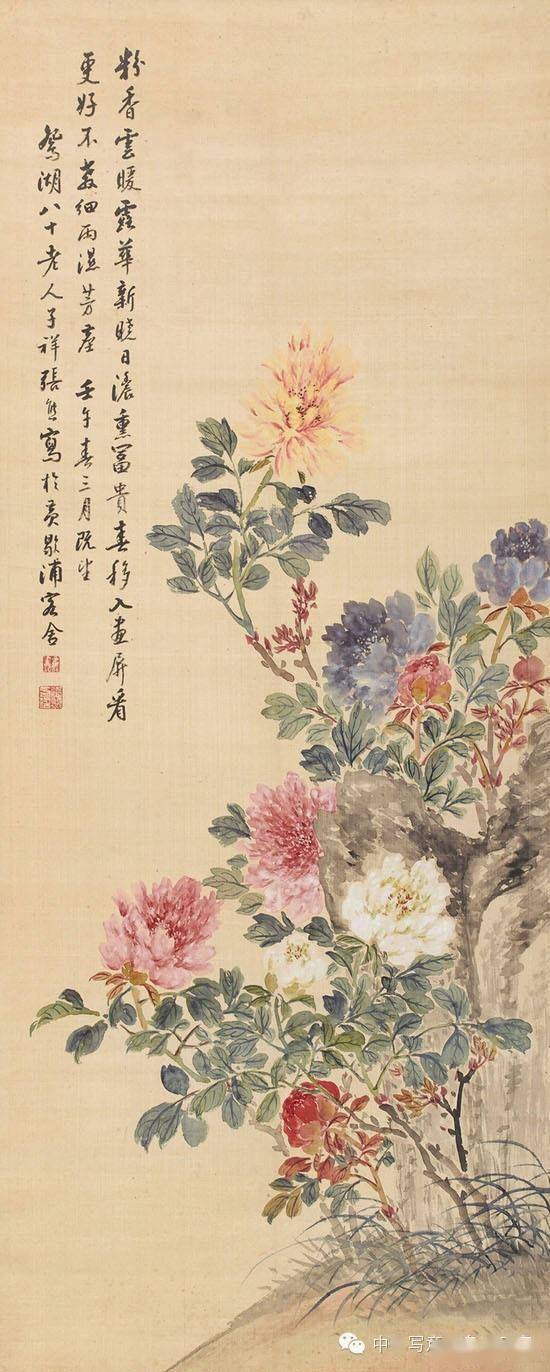 粉香雲暖露華新曉日濃熏富貴春移入畫屏看
更好不教細雨濕芳塵 壬午春三月既望
鴛湖八十老人子祥張熊寫於黃歇浦客舍
中 写